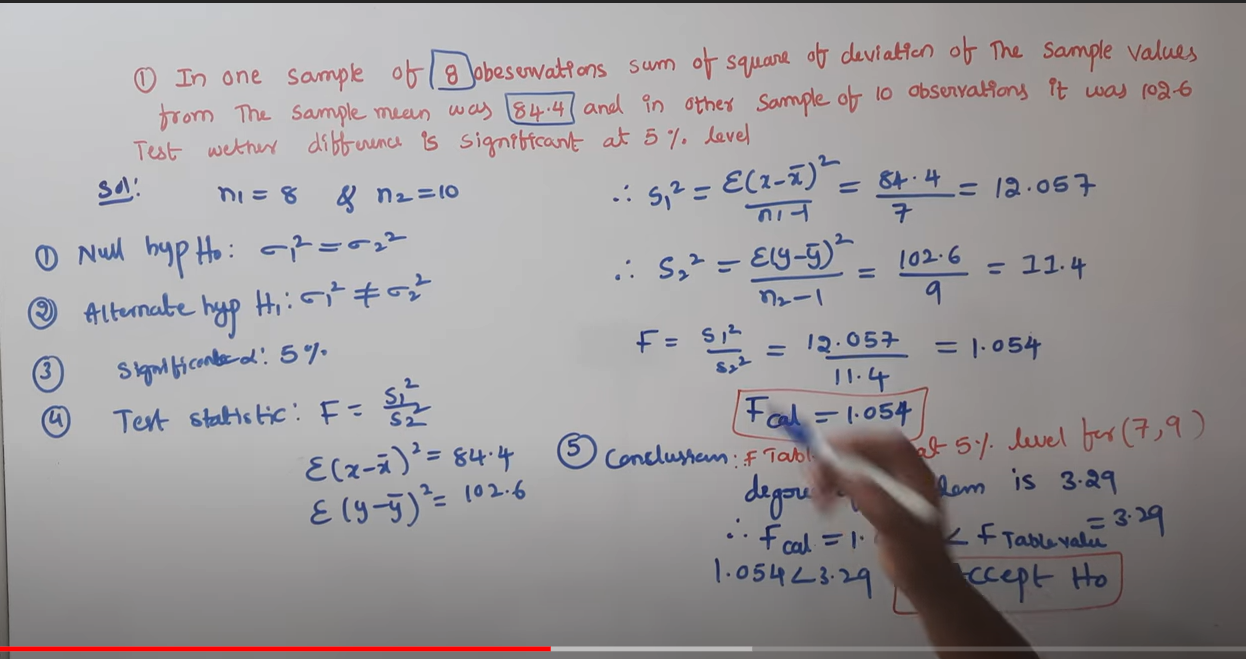 ① In one sample of 8 obeservations sum of square of deviation of The sample values
from The sample mean was 84.4 and in other sample of 10 observations it was 102.6
Test wether difference is significant at 5 % level
Sol: n₁ = 8 & n₂ = 10
① Null hyp H₀: σ₁² = σ₂²
② Alternate hyp H₁: σ₁² ≠ σ₂²
③ α: 5 %
④ Test statistic: F = S₁²/S₂²
Σ(x-x̄)² = 84.4
Σ(y-ȳ)² = 102.6
∴ S₁² = Σ(x-x̄)²/n₁-1 = 84.4/7 = 12.057
∴ S₂² = Σ(y-ȳ)²/n₂-1 = 102.6/9 = 11.4
F = S₁²/S₂² = 12.057/11.4 = 1.054
Fcal = 1.054
⑤ : F at 5% level for (7,9)
is 3.29
∴ Fcal = 1. < F Table value = 3.29
1.054 < 3.29 H₀